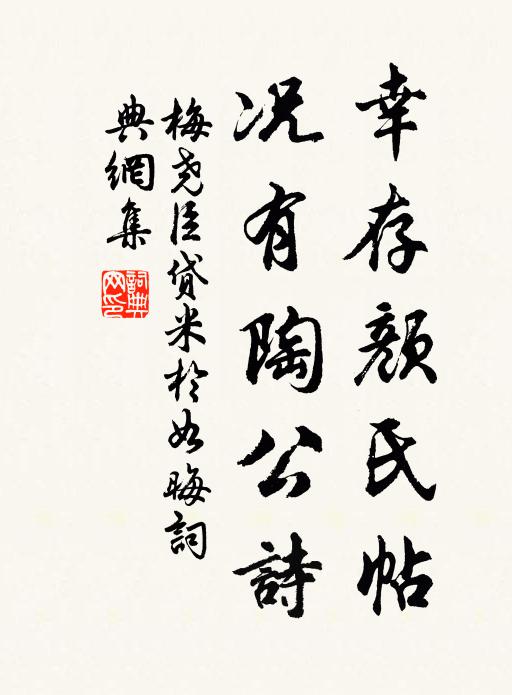 幸存顔氏帖
况有陶公詩
梅尧臣貸米於如晦詞
典網集
詞典
网印